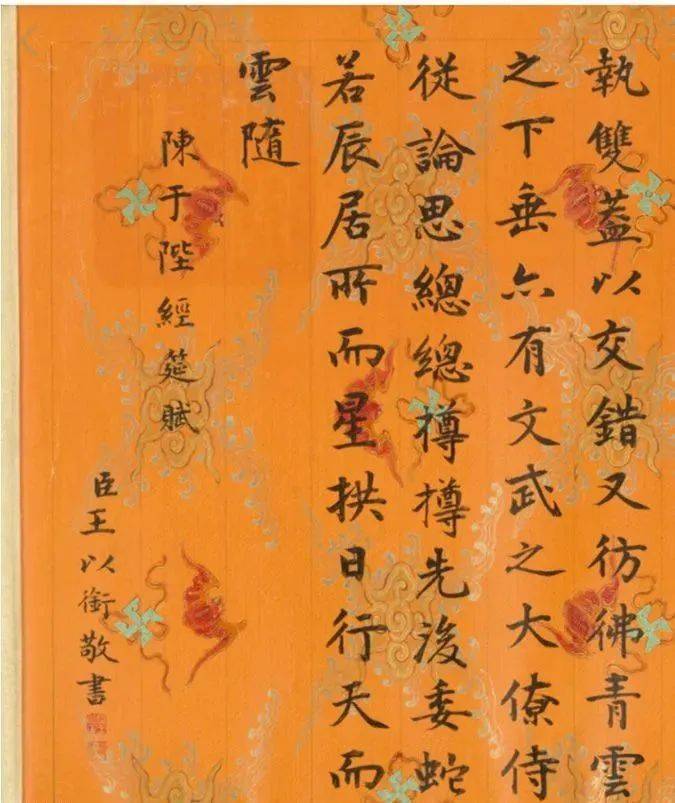 執雙蓋以交錯又彷彿青雲
之下垂亦有文武之大僚侍
從論思總總撙撙先後委蛇
若辰居所而星拱日行天而
雲隨
陳于陛經筵賦
臣王以銜敬書